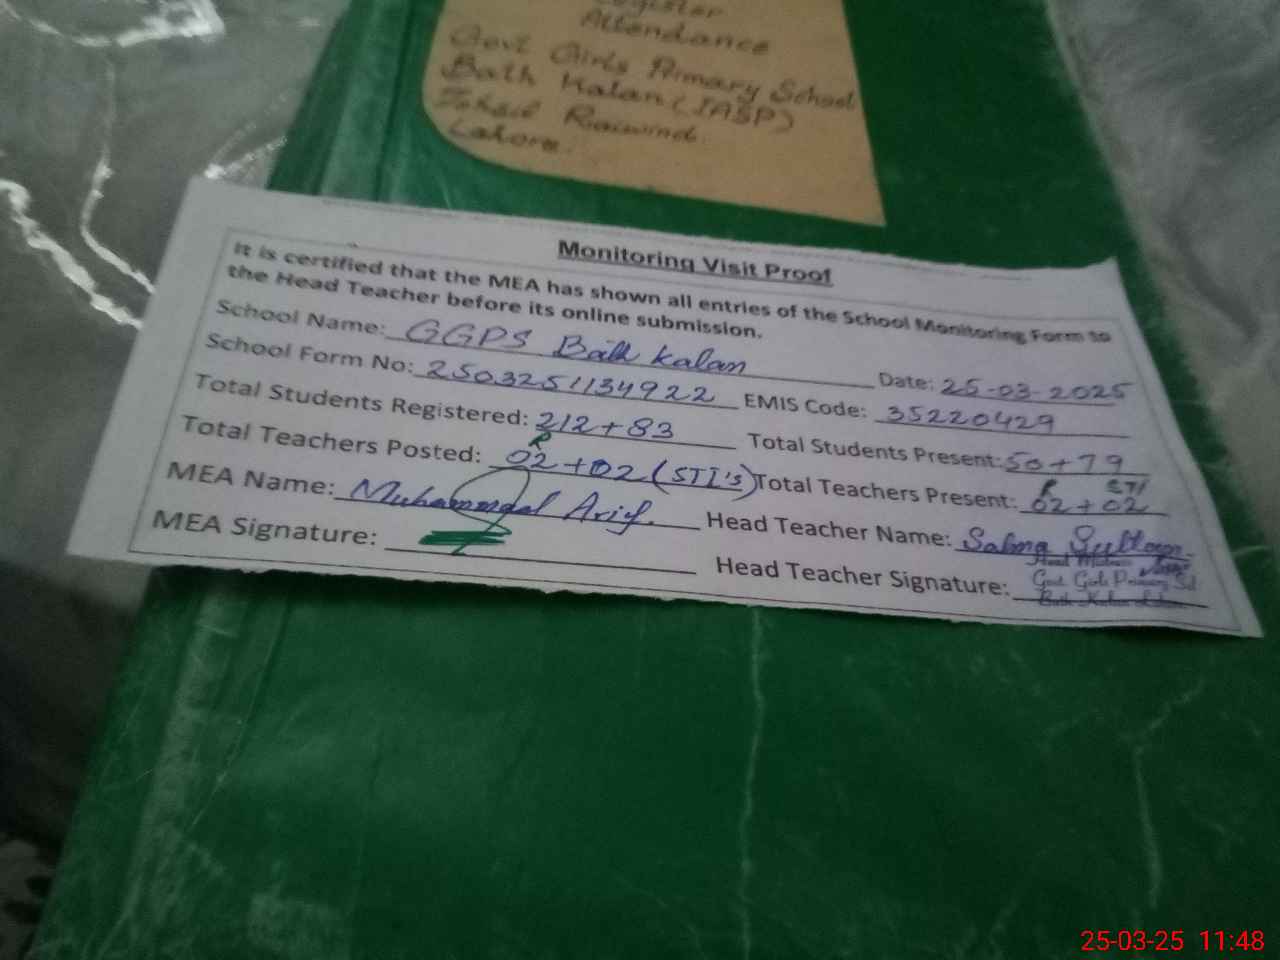 Register
Attendance
Govt Girls Primary School
Bath Kalan (IASP)
Tehsil Raiwind
Lahore.
Monitoring Visit Proof
It is certified that the MEA has shown all entries of the School Monitoring Form to
the Head Teacher before its online submission.
School Name: GGPS Bath kalan Date: 25-03-2025
School Form No: 2503251134922 EMIS Code: 35220429
Total Students Registered: 212+83 Total Students Present: 50+79
P
Total Teachers Posted: 02+02 (STI's) Total Teachers Present: 02+02
P STI
MEA Name: Muhammad Arif. Head Teacher Name: Salma Sultana
MEA Signature: Head Teacher Signature:
Head Mistress
Govt Girls Primary Scl
Bath Kalan Lahore
25-03-25 11:48